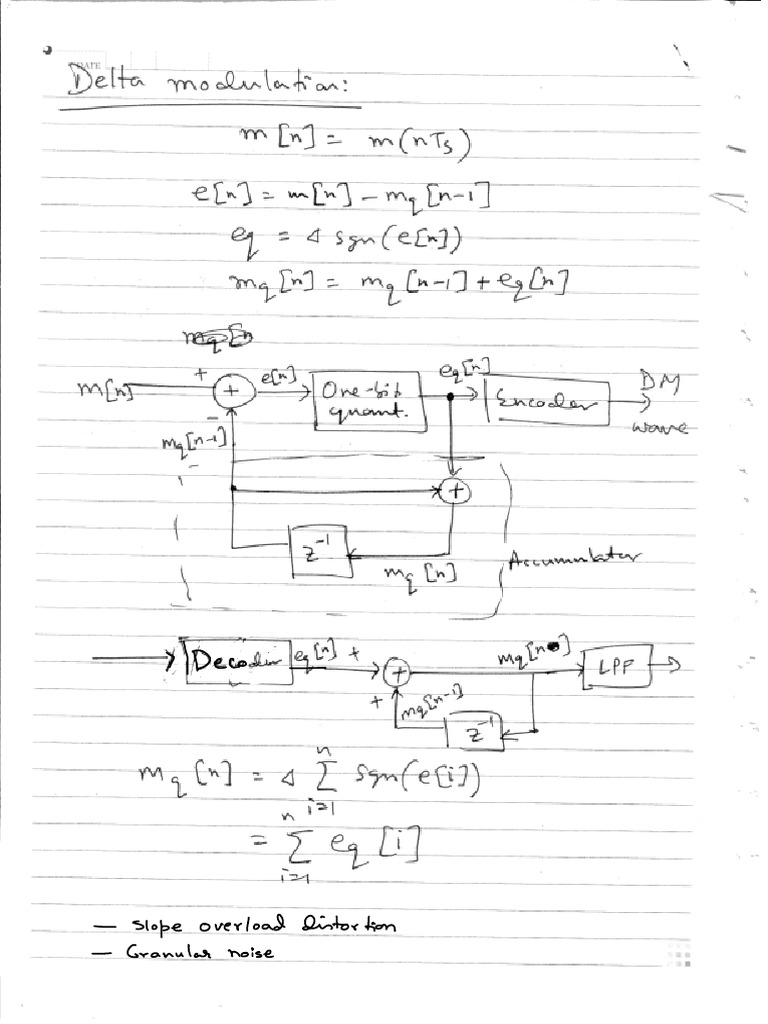 DATE
Delta modulation:
m[n] = m(nTs)
e[n] = m[n] - mq[n-1]
eq = Δ sgn(e[n])
mq[n] = mq[n-1] + eq[n]
m[n] + + e[n] One-bit quant. eq[n] Encoder DM wave
-
mq[n-1]
+
z^-1
mq[n]
Accumulator
Decoder eq[n] + + mq[n] LPF
+ mq[n-1]
z^-1
mq[n] = Δ Σ_{i=1}^{n} sgn(e[i])
= Σ_{i=1}^{n} eq[i]
— Slope overload distortion
— Granular noise